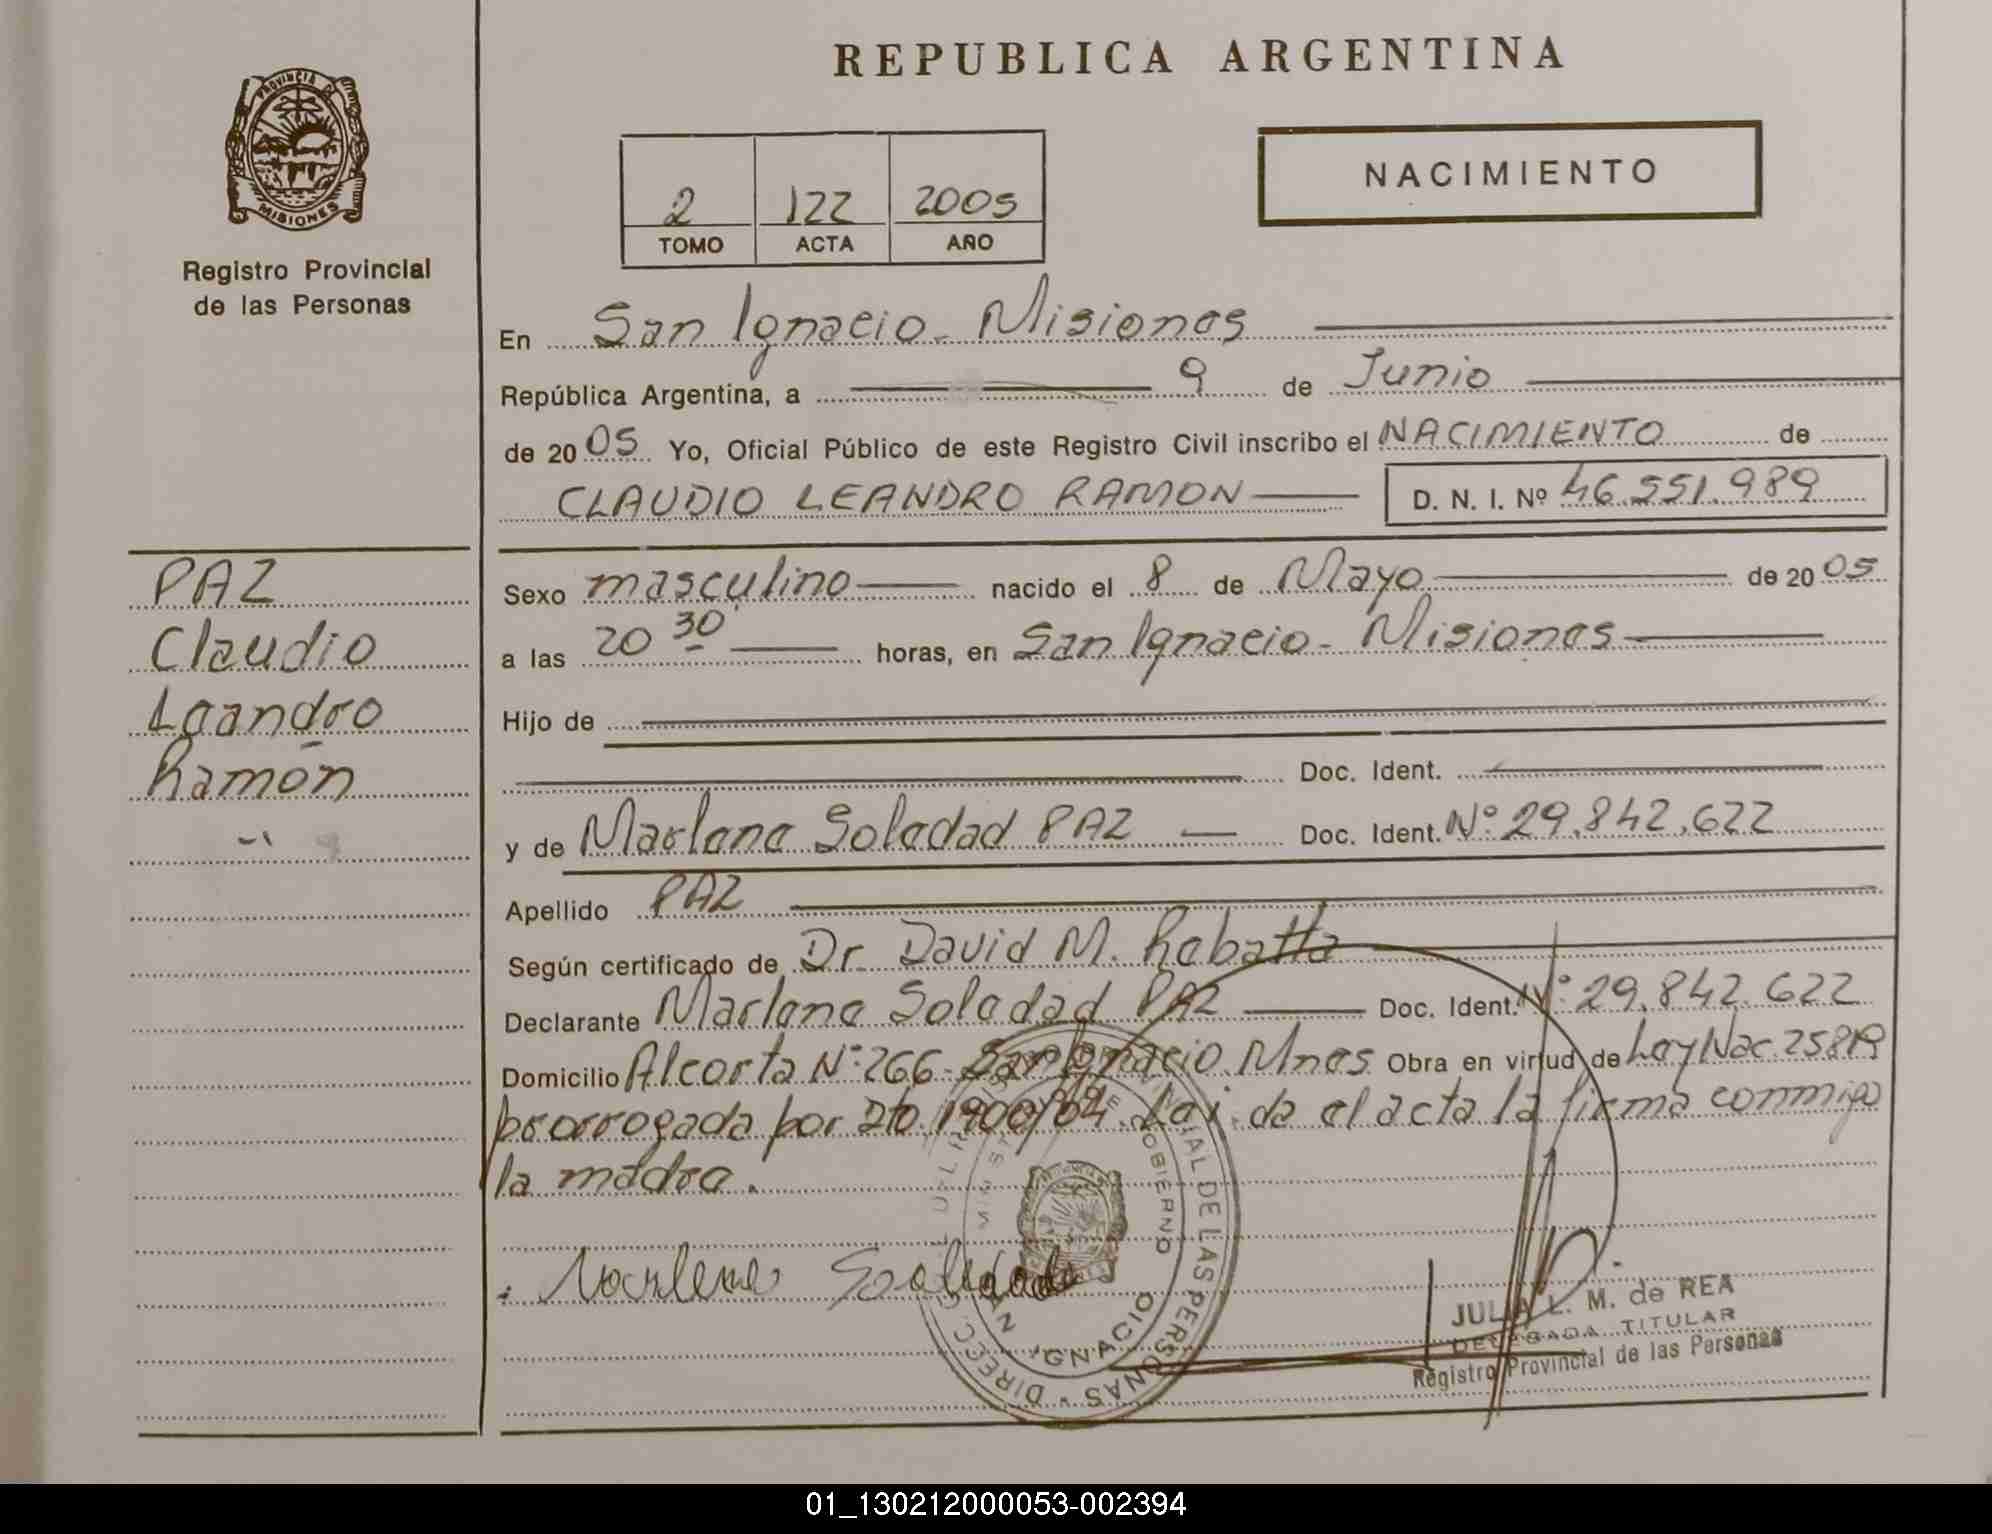 REPUBLICA ARGENTINA
PROVINCIA DE
MISIONES
Registro Provincial
de las Personas
2 122 2005
TOMO ACTA AÑO
NACIMIENTO
En San Ignacio - Misiones
República Argentina, a 9 de Junio
de 2005 Yo, Oficial Público de este Registro Civil inscribo el NACIMIENTO de
CLAUDIO LEANDRO RAMON D. N. I. Nº 46.551.989
PAZ
Claudio
Leandro
Ramón
Sexo masculino nacido el 8 de Mayo de 2005
a las 20 30 horas, en San Ignacio - Misiones
Hijo de
Doc. Ident.
y de Marlene Soledad PAZ Doc. Ident. Nº 29.842.622
Apellido PAZ
Según certificado de Dr. David M. Rebatta
Declarante Marlene Soledad PAZ Doc. Ident. Nº 29.842.622
Domicilio Alcorta Nº 266 - San Ignacio. Mnes Obra en virtud de Ley Nac. 25819
prorrogada por Dto. 1900/04. Leída el acta la firma conmigo
la madre.
Marlene Soledad
DIRECC. PROVINCIAL DE LAS PERSONAS
GOBIERNO
IGNACIO
JULIA L. M. de REA
DELEGADA TITULAR
Registro Provincial de las Personas
01_130212000053-002394